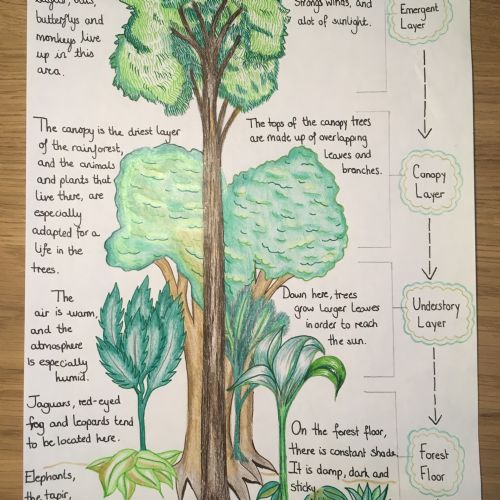 butterflys and
monkeys live
up in this
area.
Strong winds, and
alot of sunlight.
Emergent
Layer
The canopy is the driest layer
of the rainforest,
and the animals
and plants that
live there, are
especially
adapted for a
life in the
trees.
The tops of the canopy trees
are made up of overlapping
leaves and
branches.
Canopy
Layer
The
air is warm,
and the
atmosphere
is especially
humid.
Down here, trees
grow larger leaves
in order to reach
the sun.
Understory
Layer
Jaguars, red-eyed
frog and leopards tend
to be located here.
On the forest floor,
there is constant shade.
It is damp, dark and
sticky.
Forest
Floor
Elephants,
the tapir,